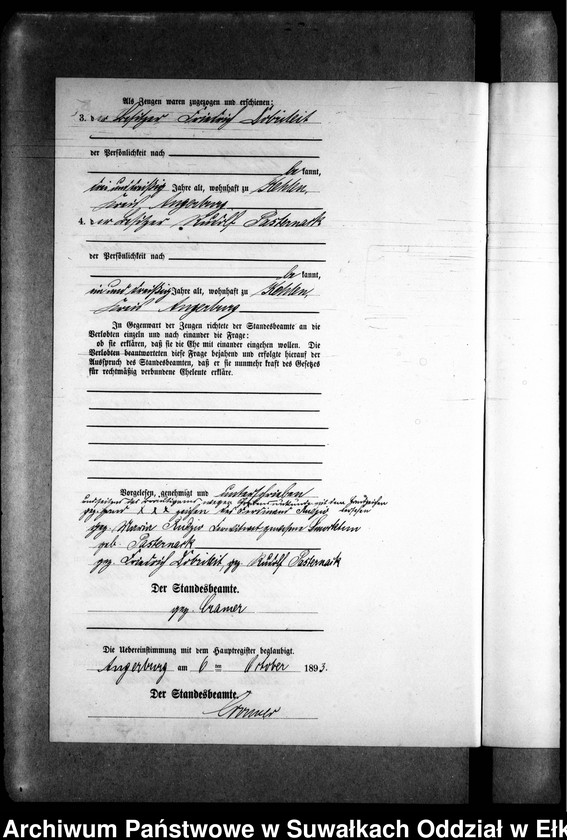 Als Zeugen waren zugezogen und erschienen:
3. der Besitzer Friedrich Dobileit
der Persönlichkeit nach
be kannt,
drei und dreißig Jahre alt, wohnhaft zu Kehlen,
Kreis Angerburg
4. der Besitzer Rudolf Pasternack
der Persönlichkeit nach
be kannt,
ein und dreißig Jahre alt, wohnhaft zu Kehlen,
Kreis Angerburg
In Gegenwart der Zeugen richtete der Standesbeamte an die
Verlobten einzeln und nach einander die Frage:
ob sie erklären, daß sie die Ehe mit einander eingehen wollen. Die
Verlobten beantworteten diese Frage bejahend und erfolgte hierauf der
Ausspruch des Standesbeamten, daß er sie nunmehr kraft des Gesetzes
für rechtmäßig verbundene Eheleute erkläre.
Vorgelesen, genehmigt und unterschrieben
und seitens des Bräutigams wegen Schreibensunkunde mit dem Handzeichen
gez. Hand x x x zeichen des Rudzio
gez. Maria Rudzio
geb. Pasternack
gez. Friedrich Dobileit, gez. Rudolf Pasternack
Der Standesbeamte.
gez. Cramer
Die Uebereinstimmung mit dem Hauptregister beglaubigt.
Angerburg am 6 ten October 1893.
Der Standesbeamte.
Cramer
Archiwum Państwowe w Suwałkach Oddział w Ełk